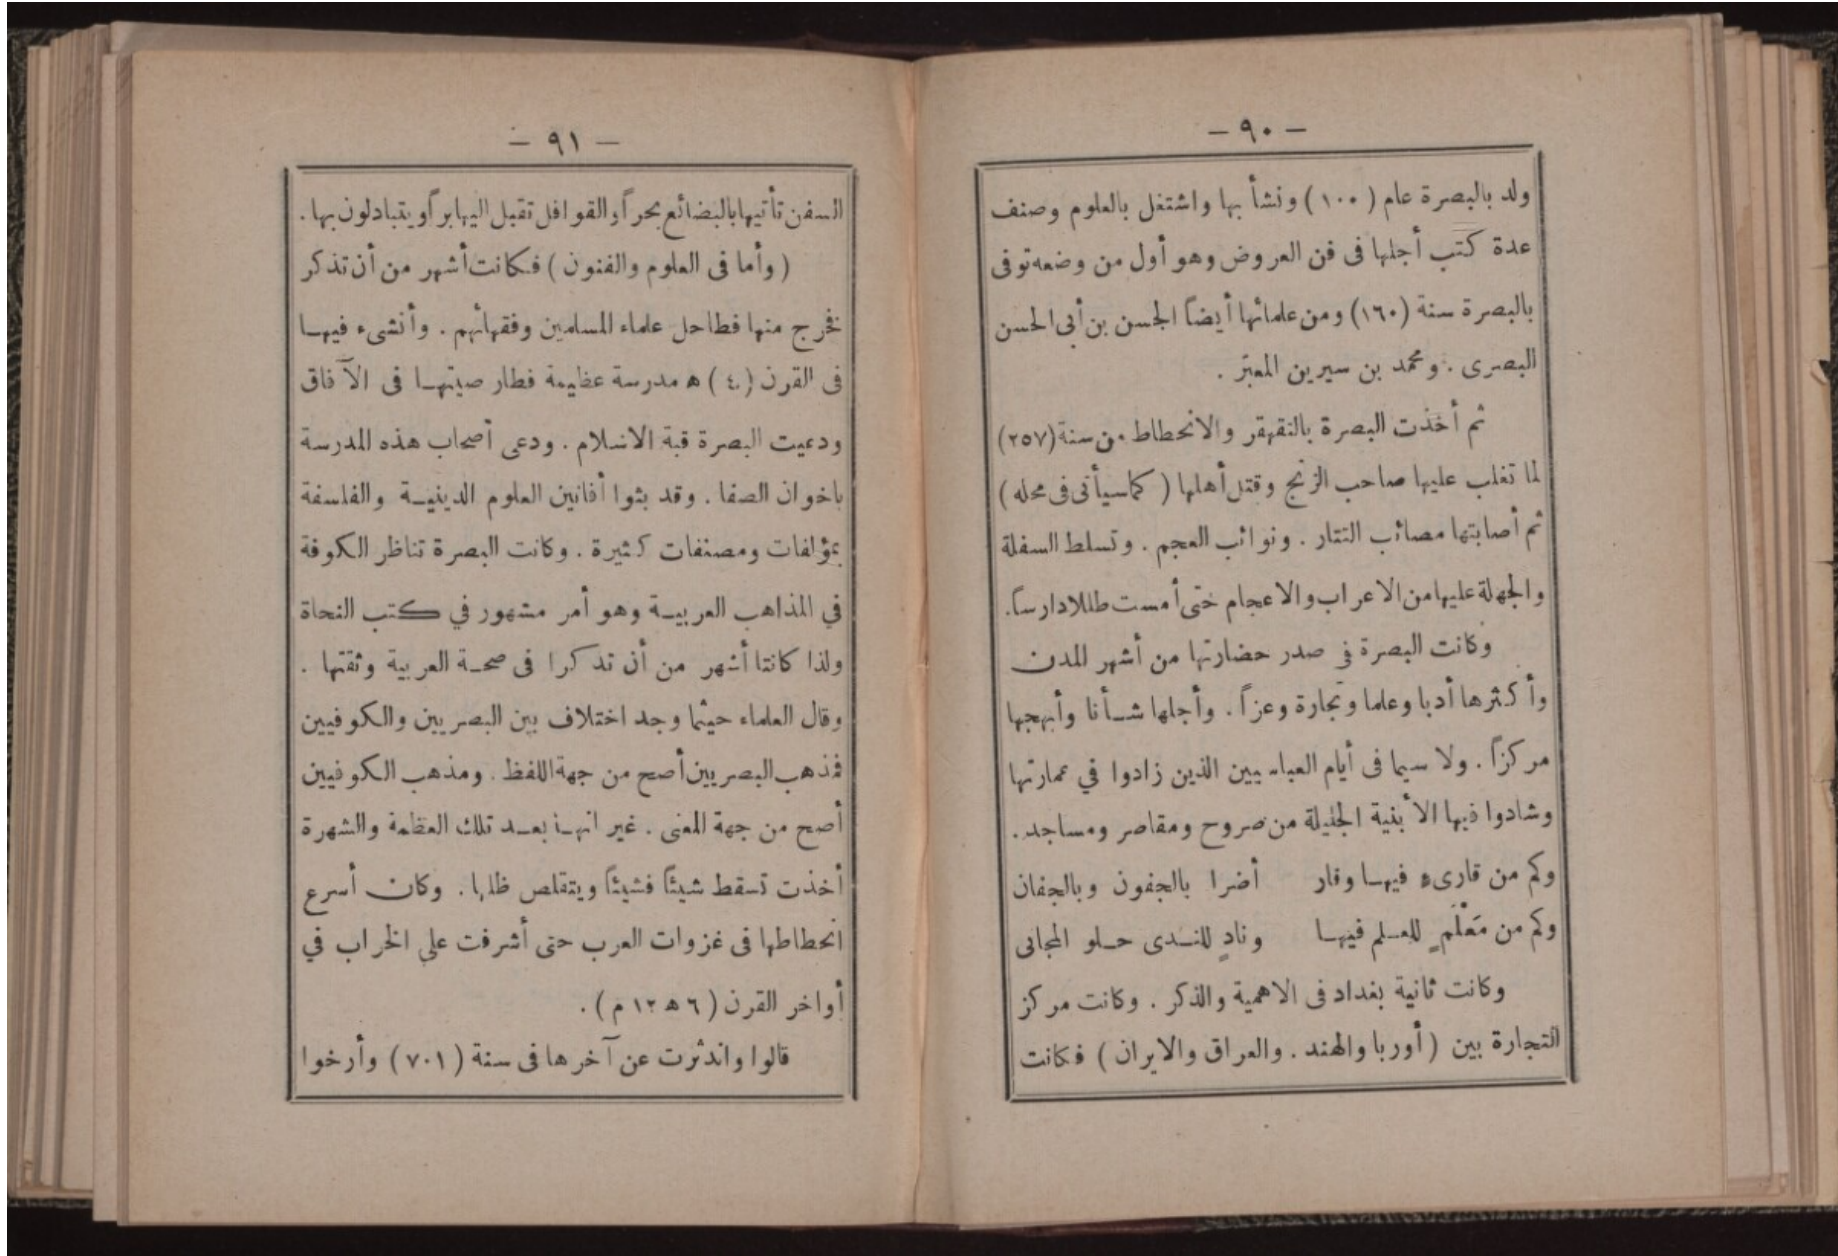 — ٩٠ —
ولد بالبصرة عام (١٠٠) ونشأ بها واشتغل بالعلوم وصنف
عدة كتب أجلها فى فن العروض وهو أول من وضعه توفى
بالبصرة سنة (١٦٠) ومن علمائها أيضاً الحسن بن أبى الحسن
البصرى . ومحمد بن سيرين المعبّر .
ثم أخذت البصرة بالتقهقر والانحطاط من سنة (٢٥٧)
لما تغلب عليها صاحب الزنج وقتل أهلها ( كما سيأتى فى محله )
ثم أصابتها مصائب التتار . ونوائب العجم . وتسلط السفلة
والجهلة عليها من الاعراب والاعجام حتى أمست طللا دارساً.
وكانت البصرة في صدر حضارتها من أشهر المدن
وأكثرها أدبا وعلما وتجارة وعزاً . وأجلها شأنا وأبهجها
مركزاً . ولا سيما فى أيام العباسيين الذين زادوا في عمارتها
وشادوا فيها الأبنية الجليلة من صروح ومقاصر ومساجد .
وكم من قارىء فيها وقار أضرا بالجفون وبالجفان
وكم من مَعْلَمٍ للعلم فيها ونادٍ للندى حلو المجانى
وكانت ثانية بغداد فى الاهمية والذكر . وكانت مركز
التجارة بين ( أوربا والهند . والعراق والايران ) فكانت
— ٩١ —
السفن تأتيها بالبضائع بحراً والقوافل تقبل اليها براً ويتبادلون بها .
( وأما فى العلوم والفنون ) فكانت أشهر من أن تذكر
فخرج منها فطاحل علماء المسلمين وفقهائهم . وأنشىء فيها
فى القرن (٤) ه مدرسة عظيمة فطار صيتها فى الآفاق
ودعيت البصرة قبة الاسلام . ودعى أصحاب هذه المدرسة
باخوان الصفا . وقد بثوا أفانين العلوم الدينية والفلسفة
بمؤلفات ومصنفات كثيرة . وكانت البصرة تناظر الكوفة
في المذاهب العربية وهو أمر مشهور في كتب النحاة
ولذا كانتا أشهر من أن تذكرا فى صحة العربية وثقتها .
وقال العلماء حيثما وجد اختلاف بين البصريين والكوفيين
فمذهب البصريين أصح من جهة اللفظ . ومذهب الكوفيين
أصح من جهة المعنى . غير انها بعد تلك العظمة والشهرة
أخذت تسقط شيئاً فشيئاً ويتقلص ظلها . وكان أسرع
انحطاطها فى غزوات العرب حتى أشرفت علي الخراب في
أواخر القرن ( ٦ ه ١٢ م ) .
قالوا واندثرت عن آخرها فى سنة (٧٠١) وأرخوا